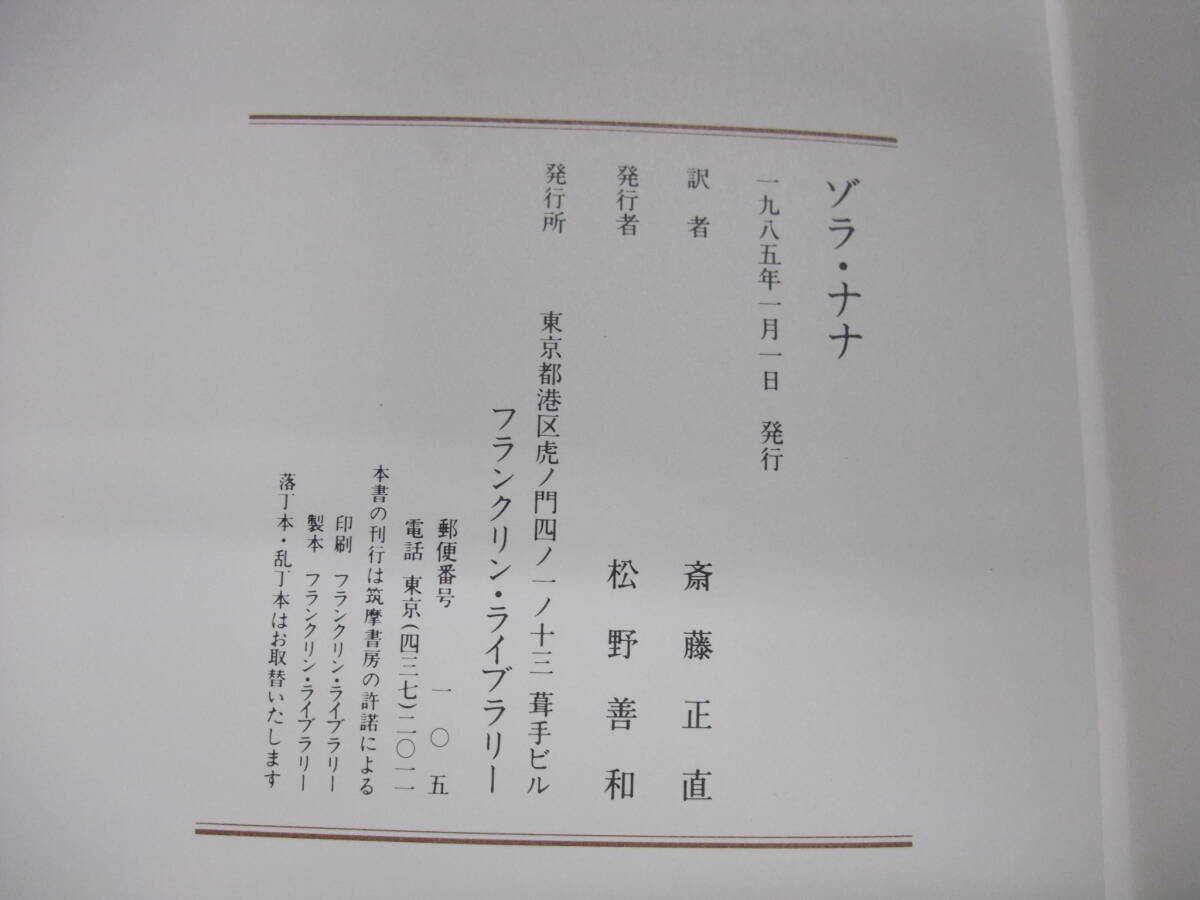 ゾラ・ナナ
一九八五年一月一日 発行
訳者 斎藤正直
発行者 松野善和
発行所 東京都港区虎ノ門四ノ一ノ十三 葺手ビル
フランクリン・ライブラリー
郵便番号 一〇五
電話 東京(四三七)二〇一一
本書の刊行は筑摩書房の許諾による
印刷 フランクリン・ライブラリー
製本 フランクリン・ライブラリー
落丁本・乱丁本はお取替いたします